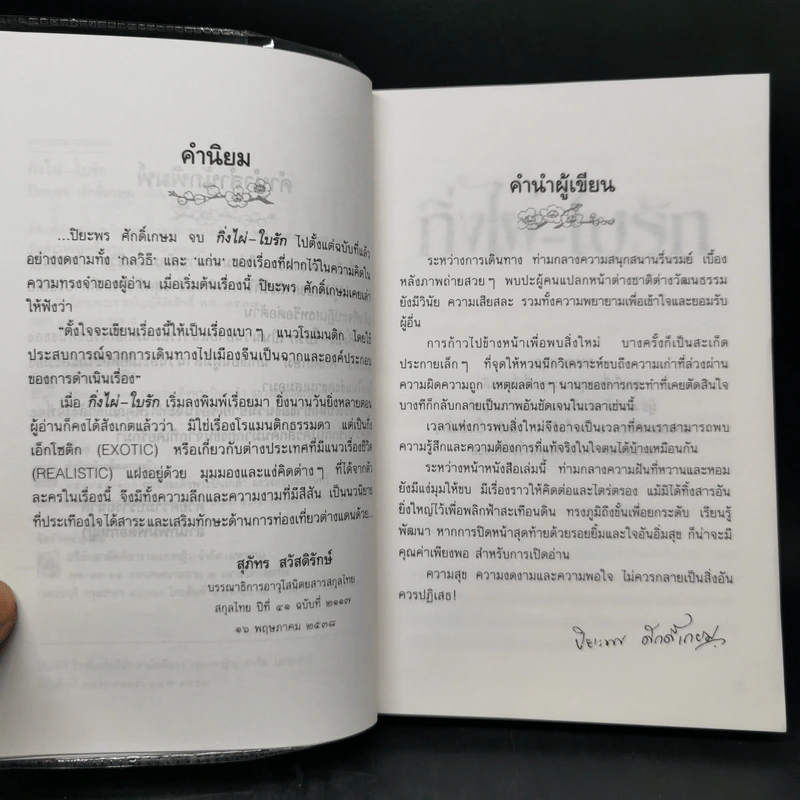 คำนิยม
...ปิยะพร ศักดิ์เกษม จบ กิ่งไผ่-ใบรัก ไปตั้งแต่ฉบับที่แล้ว
อย่างงดงามทั้ง 'กลวิธี' และ 'แก่น' ของเรื่องที่ฝากไว้ในความคิดใน
ความทรงจำของผู้อ่าน เมื่อเริ่มต้นเรื่องนี้ ปิยะพร ศักดิ์เกษมเคยเล่า
ให้ฟังว่า
"ตั้งใจจะเขียนเรื่องนี้ให้เป็นเรื่องเบาๆ แนวโรแมนติก โดยใช้
ประสบการณ์จากการเดินทางไปเมืองจีนเป็นฉากและองค์ประกอบ
ของการดำเนินเรื่อง"
เมื่อ กิ่งไผ่-ใบรัก เริ่มลงพิมพ์เรื่อยมา ยิ่งนานวันยิ่งหลายตอน
ผู้อ่านก็คงได้สังเกตแล้วว่า มิใช่เรื่องโรแมนติกธรรมดา แต่เป็นกึ่ง
เอ็กโซติก (EXOTIC) หรือเกี่ยวกับต่างประเทศที่มีแนวเรื่องชีวิต
(REALISTIC) แฝงอยู่ด้วย มุมมองและแง่คิดต่างๆ ที่ได้จากตัว
ละครในเรื่องนี้ จึงมีทั้งความลึกและความงามที่มีสีสัน เป็นนวนิยาย
ที่ประเทืองใจได้สาระและเสริมทักษะด้านการท่องเที่ยวต่างแดนด้วย...
สุภัทร สวัสดิรักษ์
บรรณาธิการอาวุโสนิตยสารสกุลไทย
สกุลไทย ปีที่ ๔๑ ฉบับที่ ๒๑๑๗
๑๖ พฤษภาคม ๒๕๓๘
คำนำผู้เขียน
ระหว่างการเดินทาง ท่ามกลางความสนุกสนานรื่นรมย์ เบื้อง
หลังภาพถ่ายสวยๆ พบปะผู้คนแปลกหน้าต่างชาติต่างวัฒนธรรม
ยังมีวินัย ความเสียสละ รวมทั้งความพยายามเพื่อเข้าใจและยอมรับ
ผู้อื่น
การก้าวไปข้างหน้าเพื่อพบสิ่งใหม่ บางครั้งก็เป็นสะเก็ด
ประกายเล็กๆ ที่จุดให้หวนนึกวิเคราะห์ขบถึงความเก่าที่ล่วงผ่าน
ความผิดความถูก เหตุผลต่างๆ นานาของการกระทำที่เคยตัดสินใจ
บางทีก็กลับกลายเป็นภาพอันชัดเจนในเวลาเช่นนี้
เวลาแห่งการพบสิ่งใหม่จึงอาจเป็นเวลาที่คนเราสามารถพบ
ความรู้สึกและความต้องการที่แท้จริงในใจตนได้บ้างเหมือนกัน
ระหว่างหน้าหนังสือเล่มนี้ ท่ามกลางความฝันที่หวานและหอม
ยังมีแง่มุมให้ขบ มีเรื่องราวให้คิดต่อและไตร่ตรอง แม้มิได้ทิ้งสารอัน
ยิ่งใหญ่ไว้เพื่อพลิกฟ้าสะเทือนดิน ทรงภูมิถึงขั้นเพื่อยกระดับ เรียนรู้
พัฒนา หากการปิดหน้าสุดท้ายด้วยรอยยิ้มและใจอันอิ่มสุข ก็น่าจะมี
คุณค่าเพียงพอ สำหรับการเปิดอ่าน
ความสุข ความงดงามและความพอใจ ไม่ควรกลายเป็นสิ่งอัน
ควรปฏิเสธ!
ปิยะพร ศักดิ์เกษม